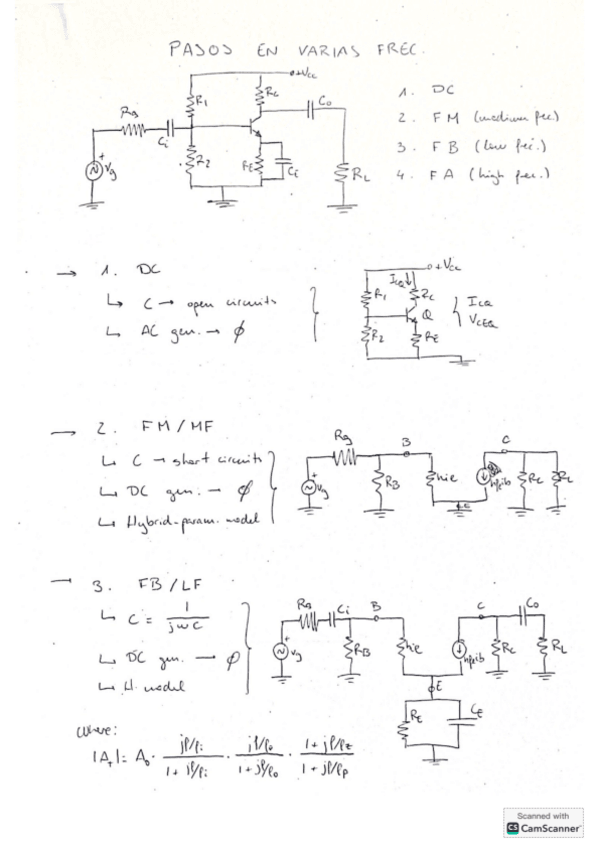 PASOS EN VARIAS FREC.
+Vcc
R1
Rc
Co
Rg
Ci
+
Vg
R2
RE
CE
RL
1. DC
2. FM (medium fec.)
3. FB (low fec.)
4. FA (high fec.)
→ 1. DC
↳ C → open circuits
↳ AC gen. → ∅
+Vcc
ICQ
R1
Rc
Q
R2
RE
ICQ
VCEQ
→ 2. FM/MF
↳ C → short circuits
↳ DC gen. → ∅
↳ Hybrid-param. model
Rg
B
C
+
Vg
RB
hie
hfeib
Rc
RL
E
3. FB/LF
↳ C = 1/jωC
↳ DC gen. → ∅
↳ H. model
Rg
Ci
B
C
Co
+
Vg
RB
hie
hfeib
Rc
RL
E
RE
CE
where:
|AT| = Ao · (jf/fi)/(1 + jf/fi) · (jf/fo)/(1 + jf/fo) · (1 + jf/fz)/(1 + jf/fp)
Scanned with
CS CamScanner